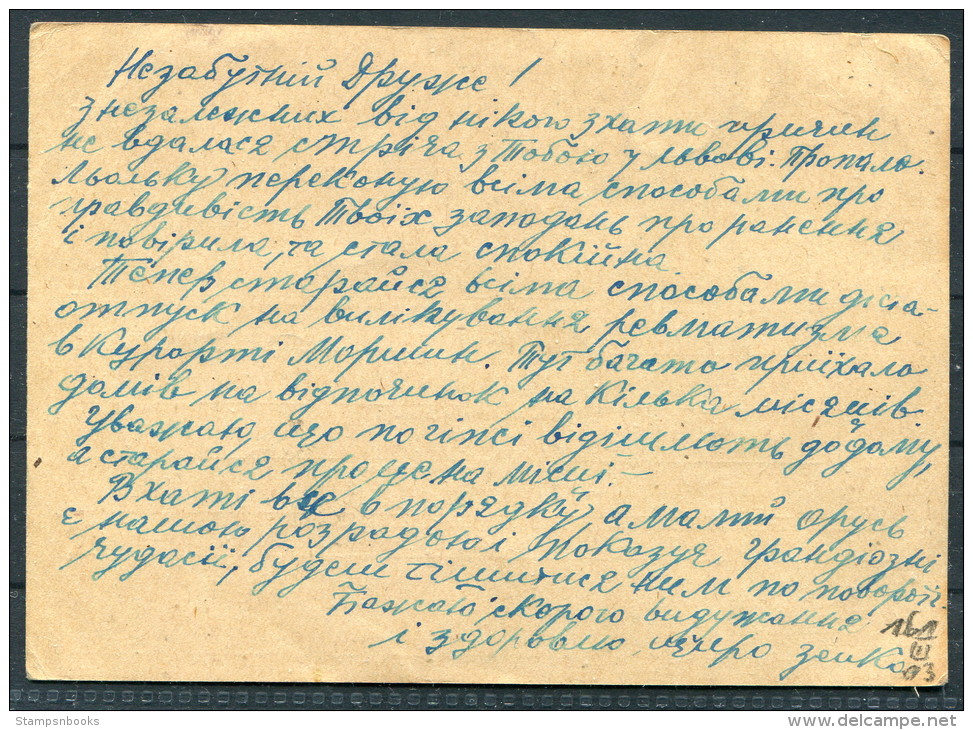 Незабутній Друже!
З незалежних від нікого з хати причин
не вдалася стріча з Тобою у Львові. Пропало.
Льольку переконую всіма способами про
правдивість Твоїх заподань про ранення
і повірила, та стала спокійна.
Тепер старайся всіма способами діста-
отпуск на вилікування ревматизма
в курорті Моршин. Тут багато приїхало
домів на відпочинок на кілька місяців.
Уважаю, що по гіпсі відішлють додому,
а старайся про це на місці.–
В хаті все в порядку, а малий Орусь
є нашою розрадою і показує грандіозні
чудасії, будеш тішитися ним по повороті
Бажаю скорого видужання
і здоровлю щиро Зенко
161
III
93
Stampsnbooks
www.delcampe.net